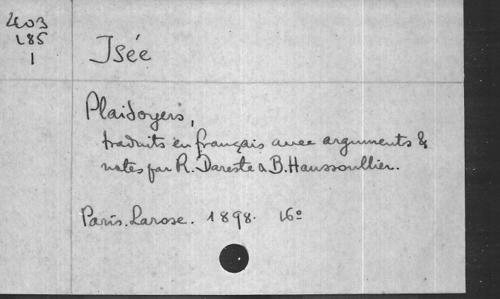 403
185
1
Isée
Plaidoyers,
traduits en français avec arguments &
notes par R. Dareste & B. Haussoullier.
Paris. Larose. 1898. 16º